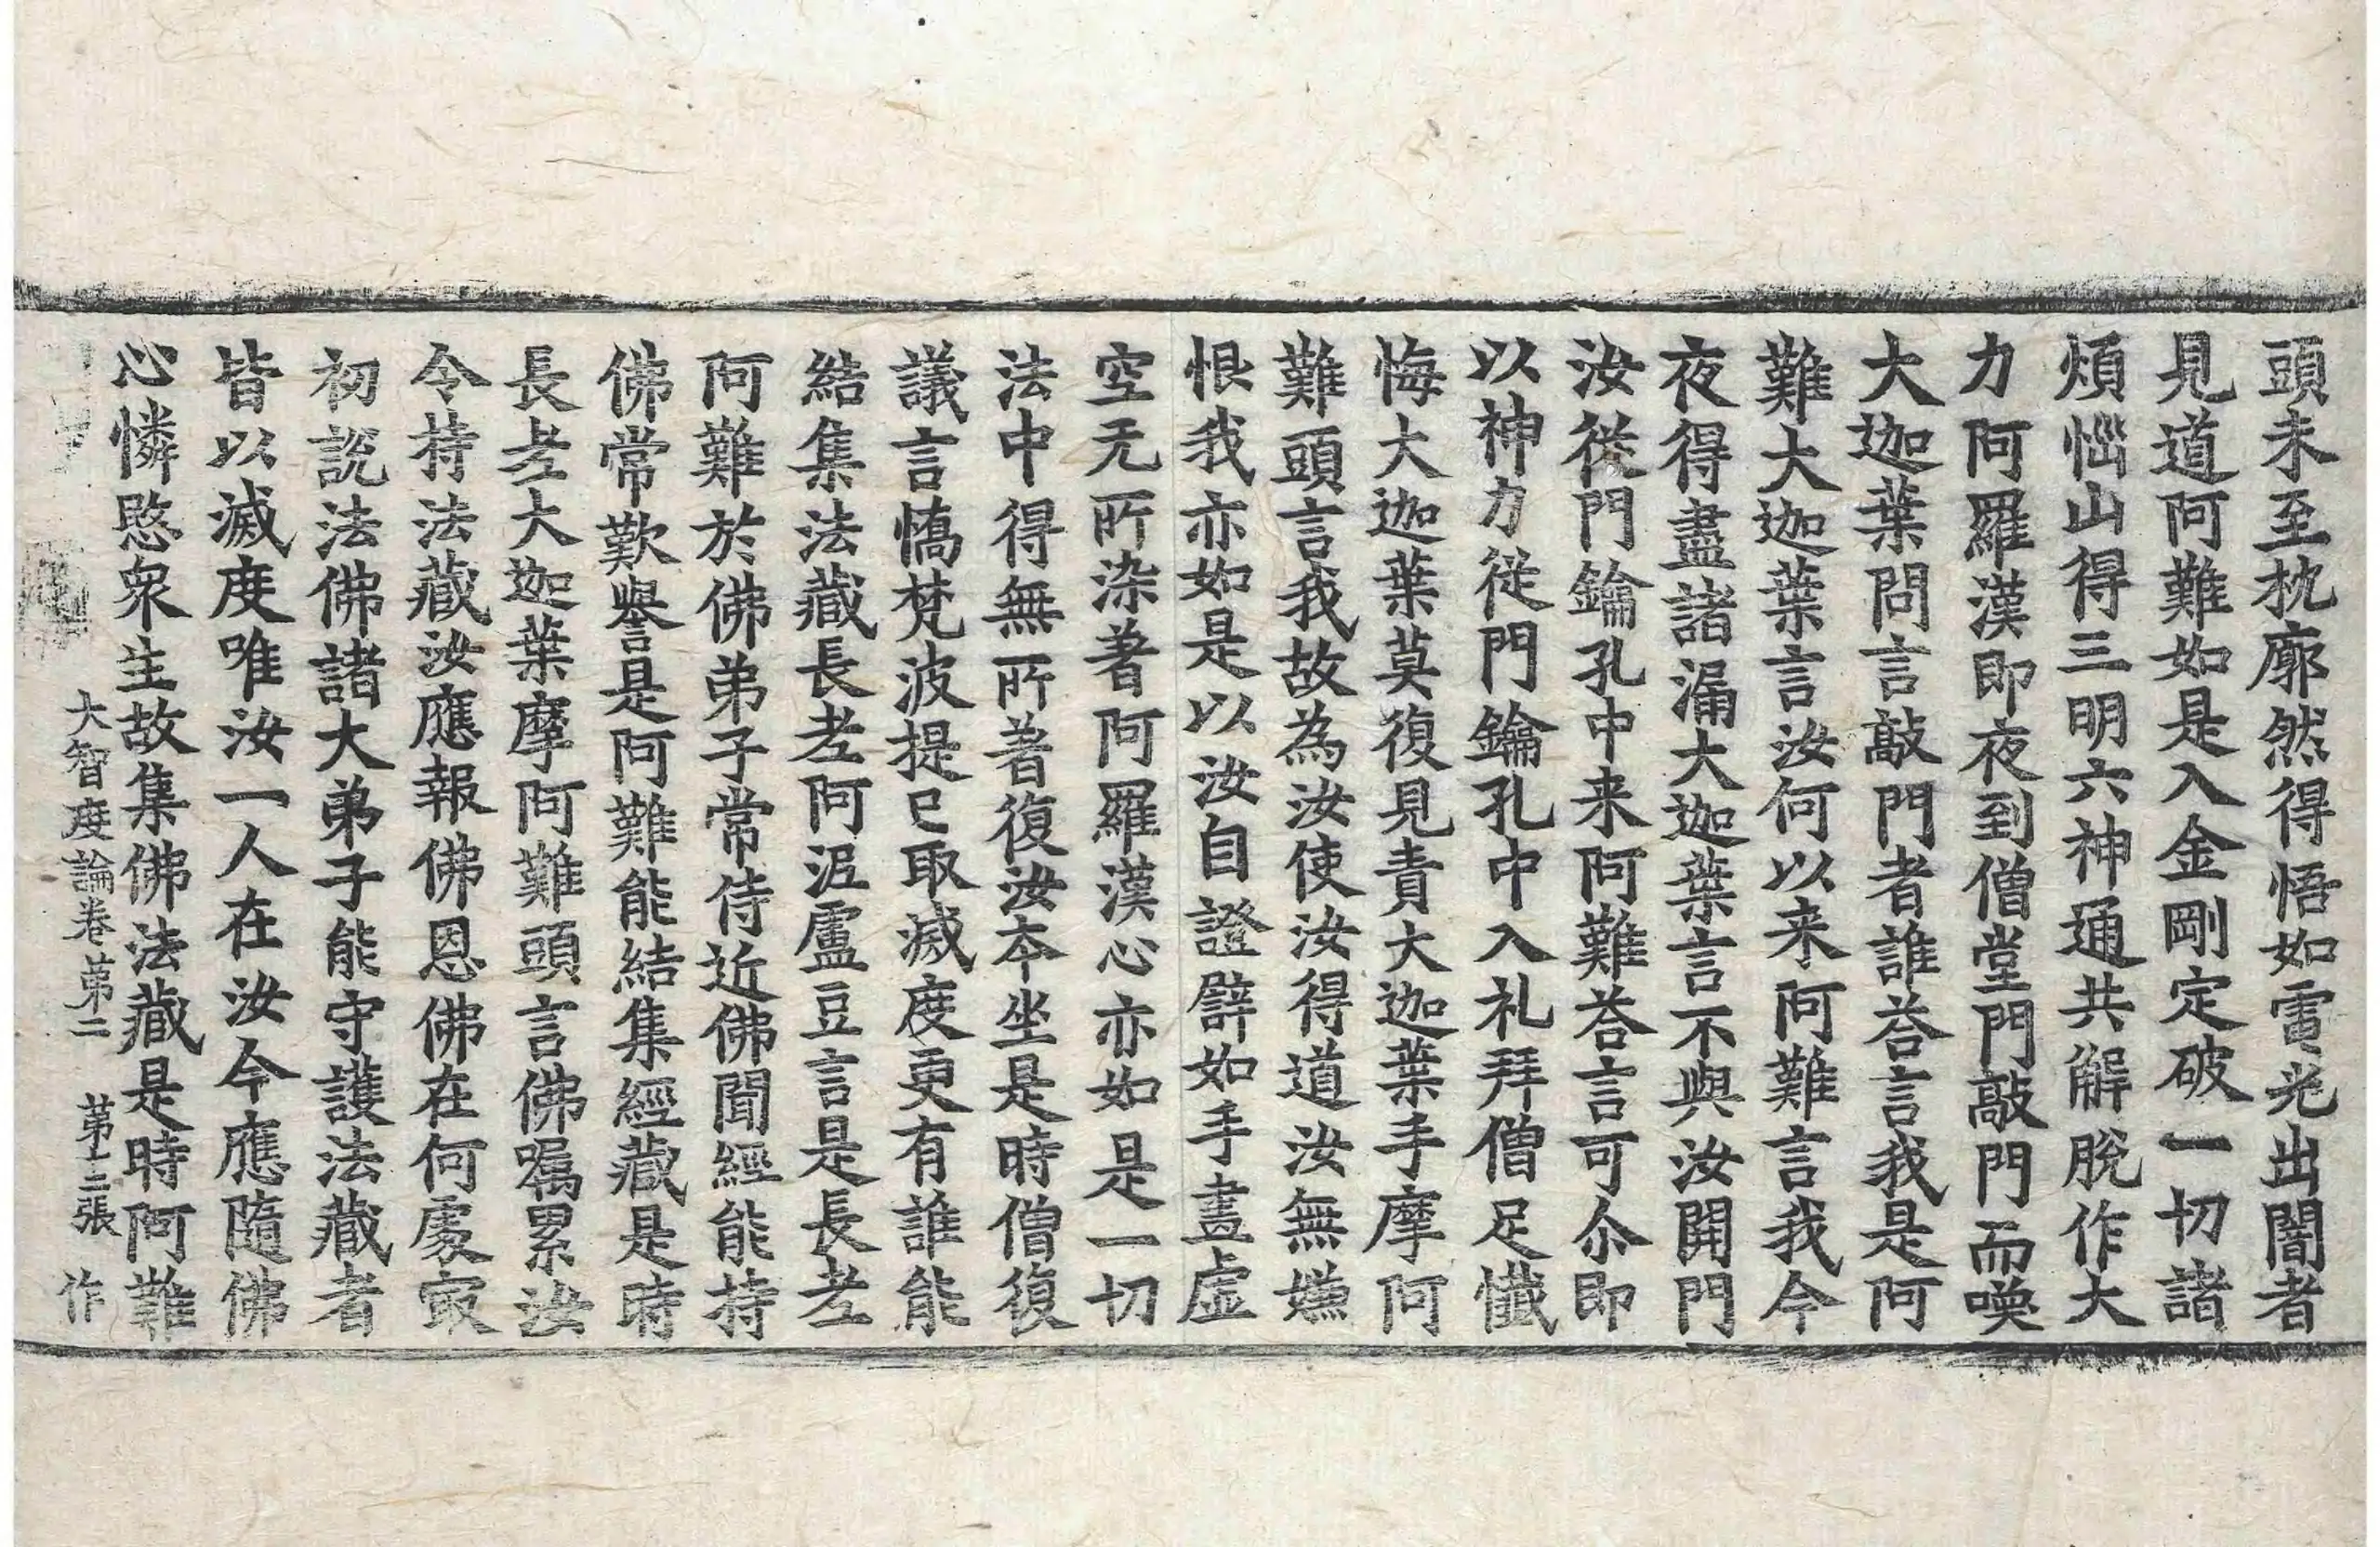 頭未至枕廓然得悟如電光出闇者
見道阿難如是入金剛定破一切諸
煩惱山得三明六神通共解脫作大
力阿羅漢即夜到僧堂門敲門而喚
大迦葉問言敲門者誰荅言我是阿
難大迦葉言汝何以来阿難言我今
夜得盡諸漏大迦葉言不與汝開門
汝從門鑰孔中来阿難荅言可尒即
以神力從門鑰孔中入礼拜僧足懺
悔大迦葉莫復見責大迦葉手摩阿
難頭言我故為汝使汝得道汝無嫌
恨我亦如是以汝自證譬如手畫虛
空无所染著阿羅漢心亦如是一切
法中得無所著復汝本坐是時僧復
議言憍梵波提已取滅度更有誰能
結集法藏長老阿泥盧豆言是長老
阿難於佛弟子常侍近佛聞經能持
佛常歎譽是阿難能結集經藏是時
長老大迦葉摩阿難頭言佛囑累汝
令持法藏汝應報佛恩佛在何處㝡
初說法佛諸大弟子能守護法藏者
皆以滅度唯汝一人在汝今應隨佛
心憐愍衆生故集佛法藏是時阿難
大智度論卷第二 第十二張 作